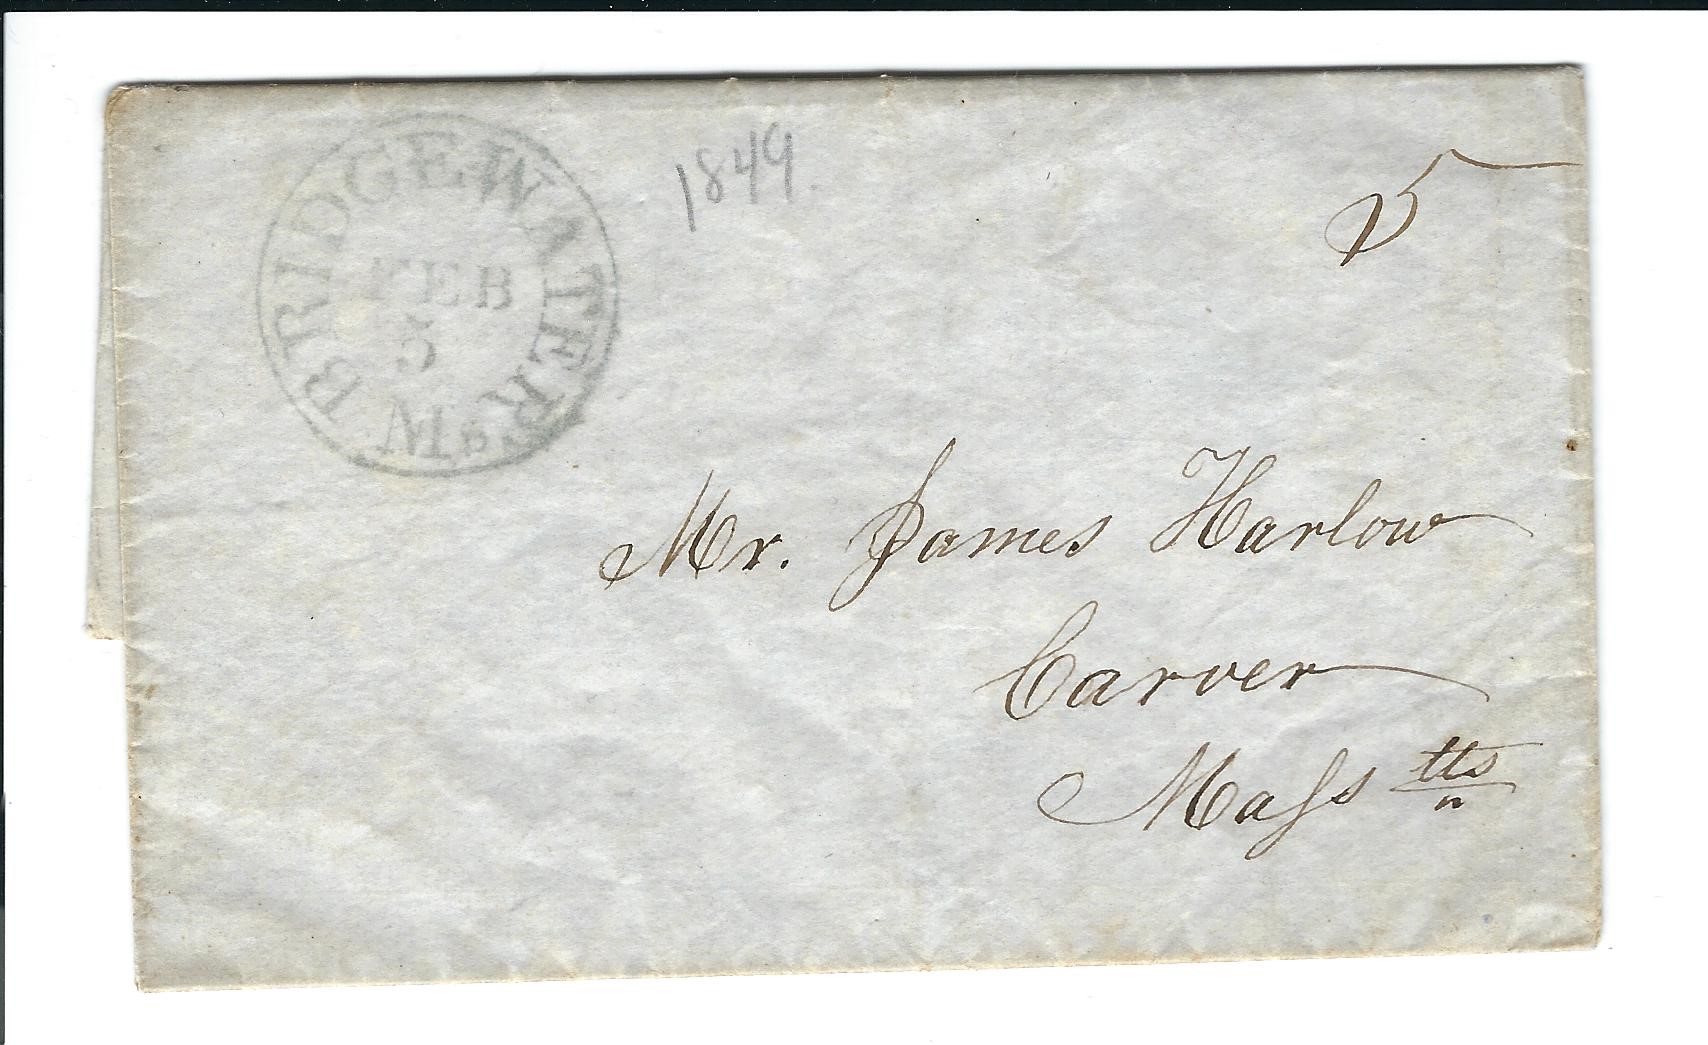 BRIDGEWATER
FEB
5
Ms.
1849.
5
Mr. James Harlow
Carver
Maſs tts